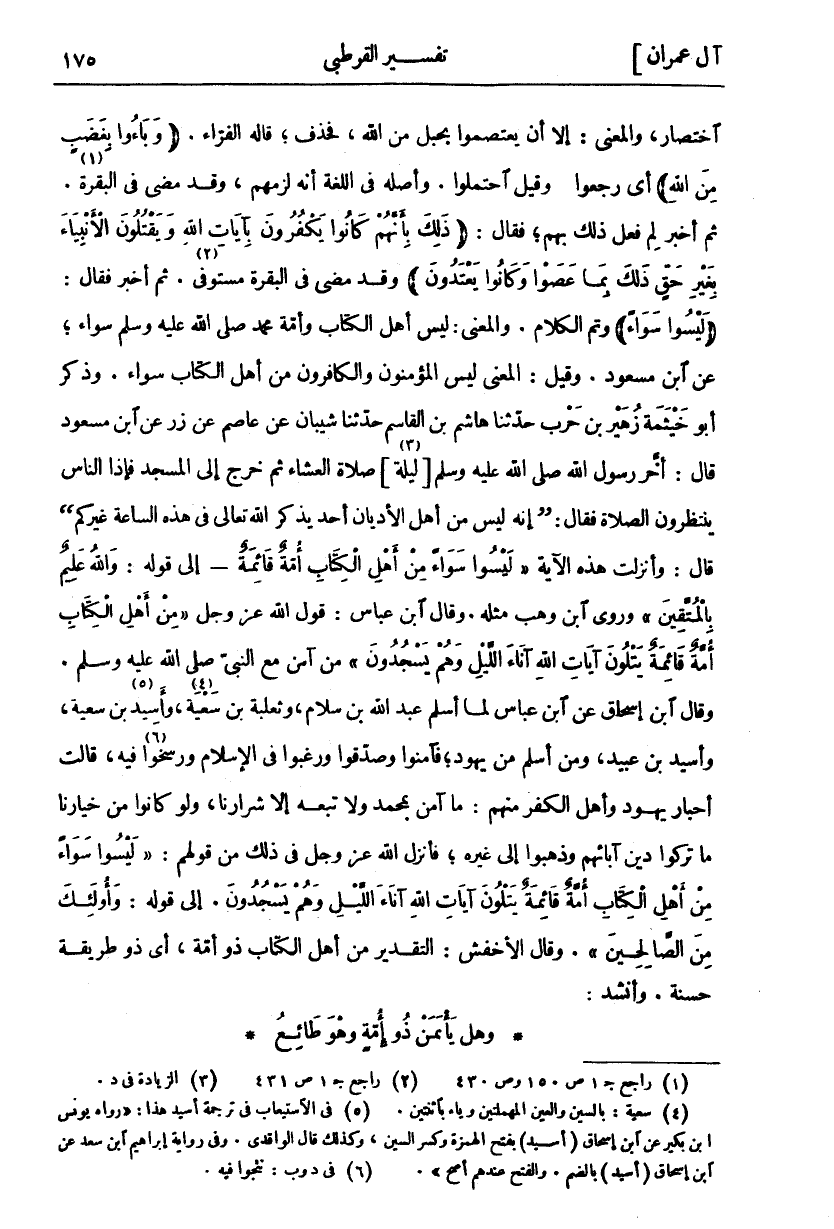 آل عمران] تفسير القرطبي ١٧٥
ٱختصار، والمعنى : إلا أن يعتصموا بحبل من الله ، فحذف ؛ قاله الفرّاء . ﴿ وَبَاءُوا بِغَضَبٍ
مِنَ اللهِ﴾ أى رجعوا وقيل ٱحتملوا . وأصله فى اللغة أنه لزمهم ، وقـد مضى فى البقرة (١) .
ثم أخبر لِم فعل ذلك بهم؛ فقال : ﴿ ذَلِكَ بِأَنَّهُمْ كَانُوا يَكْفُرُونَ بِآيَاتِ اللهِ وَيَقْتُلُونَ الْأَنْبِيَاءَ
بِغَيْرِ حَقٍّ ذَلِكَ بِمَـا عَصَوْا وَكَانُوا يَعْتَدُونَ ﴾ وقـد مضى فى البقرة (٢) مستوفى . ثم أخبر فقال :
﴿لَيْسُوا سَوَاءً﴾ وتم الكلام . والمعنى: ليس أهل الكتاب وأمّة محمد صلى الله عليه وسلم سواء ؛
عن ٱبن مسعود . وقيل : المعنى ليس المؤمنون والكافرون من أهل الكتاب سواء . وذكر
أبو خَيْثَمة زُهَيْر بن حَرْب حدّثنا هاشم بن القاسم حدّثنا شيبان عن عاصم عن زر عن ٱبن مسعود
قال : أخّر رسول الله صلى الله عليه وسلم [ ليلة ] (٣) صلاة العشاء ثم خرج إلى المسجد فإذا الناس
ينتظرون الصلاة فقال: ” إنه ليس من أهل الأديان أحد يذكر الله تعالى فى هذه الساعة غيركم “
قال : وأنزلت هذه الآية « لَيْسُوا سَوَاءً مِنْ أَهْلِ الْكِتَابِ أُمَّةٌ قَائِمَةٌ — إلى قوله : وَاللهُ عَلِيمٌ
بِالْمُتَّقِينَ » وروى ٱبن وهب مثله . وقال ٱبن عباس : قول الله عز وجل «مِنْ أَهْلِ الْكِتَابِ
أُمَّةٌ قَائِمَةٌ يَتْلُونَ آيَاتِ اللهِ آنَاءَ اللَّيْلِ وَهُمْ يَسْجُدُونَ » من آمن مع النبيّ صلى الله عليه وسـلم .
وقال ٱبن إسحاق عن ٱبن عباس لمـا أسلم عبد الله بن سلام، وثعلبة بن سَعْيَة (٤) ، وأَسِيد (٥) بن سعية ،
وأسيد بن عبيد، ومن أسلم من يهود؛ فآمنوا وصدّقوا ورغبوا فى الإسلام ورسخوا (٦) فيه، قالت
أحبار يهـود وأهل الكفر منهم : ما آمن بمحمد ولا تبعـه إلا شرارنا، ولو كانوا من خيارنا
ما تركوا دين آبائهم وذهبوا إلى غيره ؛ فأنزل الله عز وجل فى ذلك من قولهم : « لَيْسُوا سَوَاءً
مِنْ أَهْلِ الْكِتَابِ أُمَّةٌ قَائِمَةٌ يَتْلُونَ آيَاتِ اللهِ آنَاءَ اللَّيْـلِ وَهُمْ يَسْجُدُونَ . إلى قوله : وَأُولَئِـكَ
مِنَ الصَّالِحِـينَ » . وقال الأخفش : التقدير من أهل الكتاب ذو أمّة ، أى ذو طريقـة
حسنة . وأنشد :
* وهل يَأْثَمَنْ ذُو أُمّةٍ وهْوَ طَائِـعُ *
(١) راجع جـ ١ ص ١٥٠ وص ٤٣٠ (٢) راجع جـ ١ ص ٤٣١ (٣) الزيادة فى د .
(٤) سعية : بالسين والعين المهملتين وياء بٱثنتين . (٥) فى الٱستيعاب فى ترجمة أسيد هذا : «رواه يونس
ابن بكير عن ٱبن إسحاق ( أسـيد ) بفتح الهمزة وكسر السين ، وكذلك قال الواقدى . وفى رواية إبراهيم ٱبن سعد عن
ٱبن إسحاق ( أسيد ) بالضم . والفتح عندهم أصح » . (٦) فى د وب : نتجوا فيه .